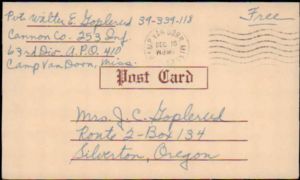 Pvt. Walter E. Goplerud 37-339-118
Free
Cannon Co. 253 Inf.
63rd Div. A.P.O. 410
Camp Van Dorn, Miss.
DEC 15
Post Card
Mrs. J. C. Goplerud
Route 2-Box 134
Silverton, Oregon